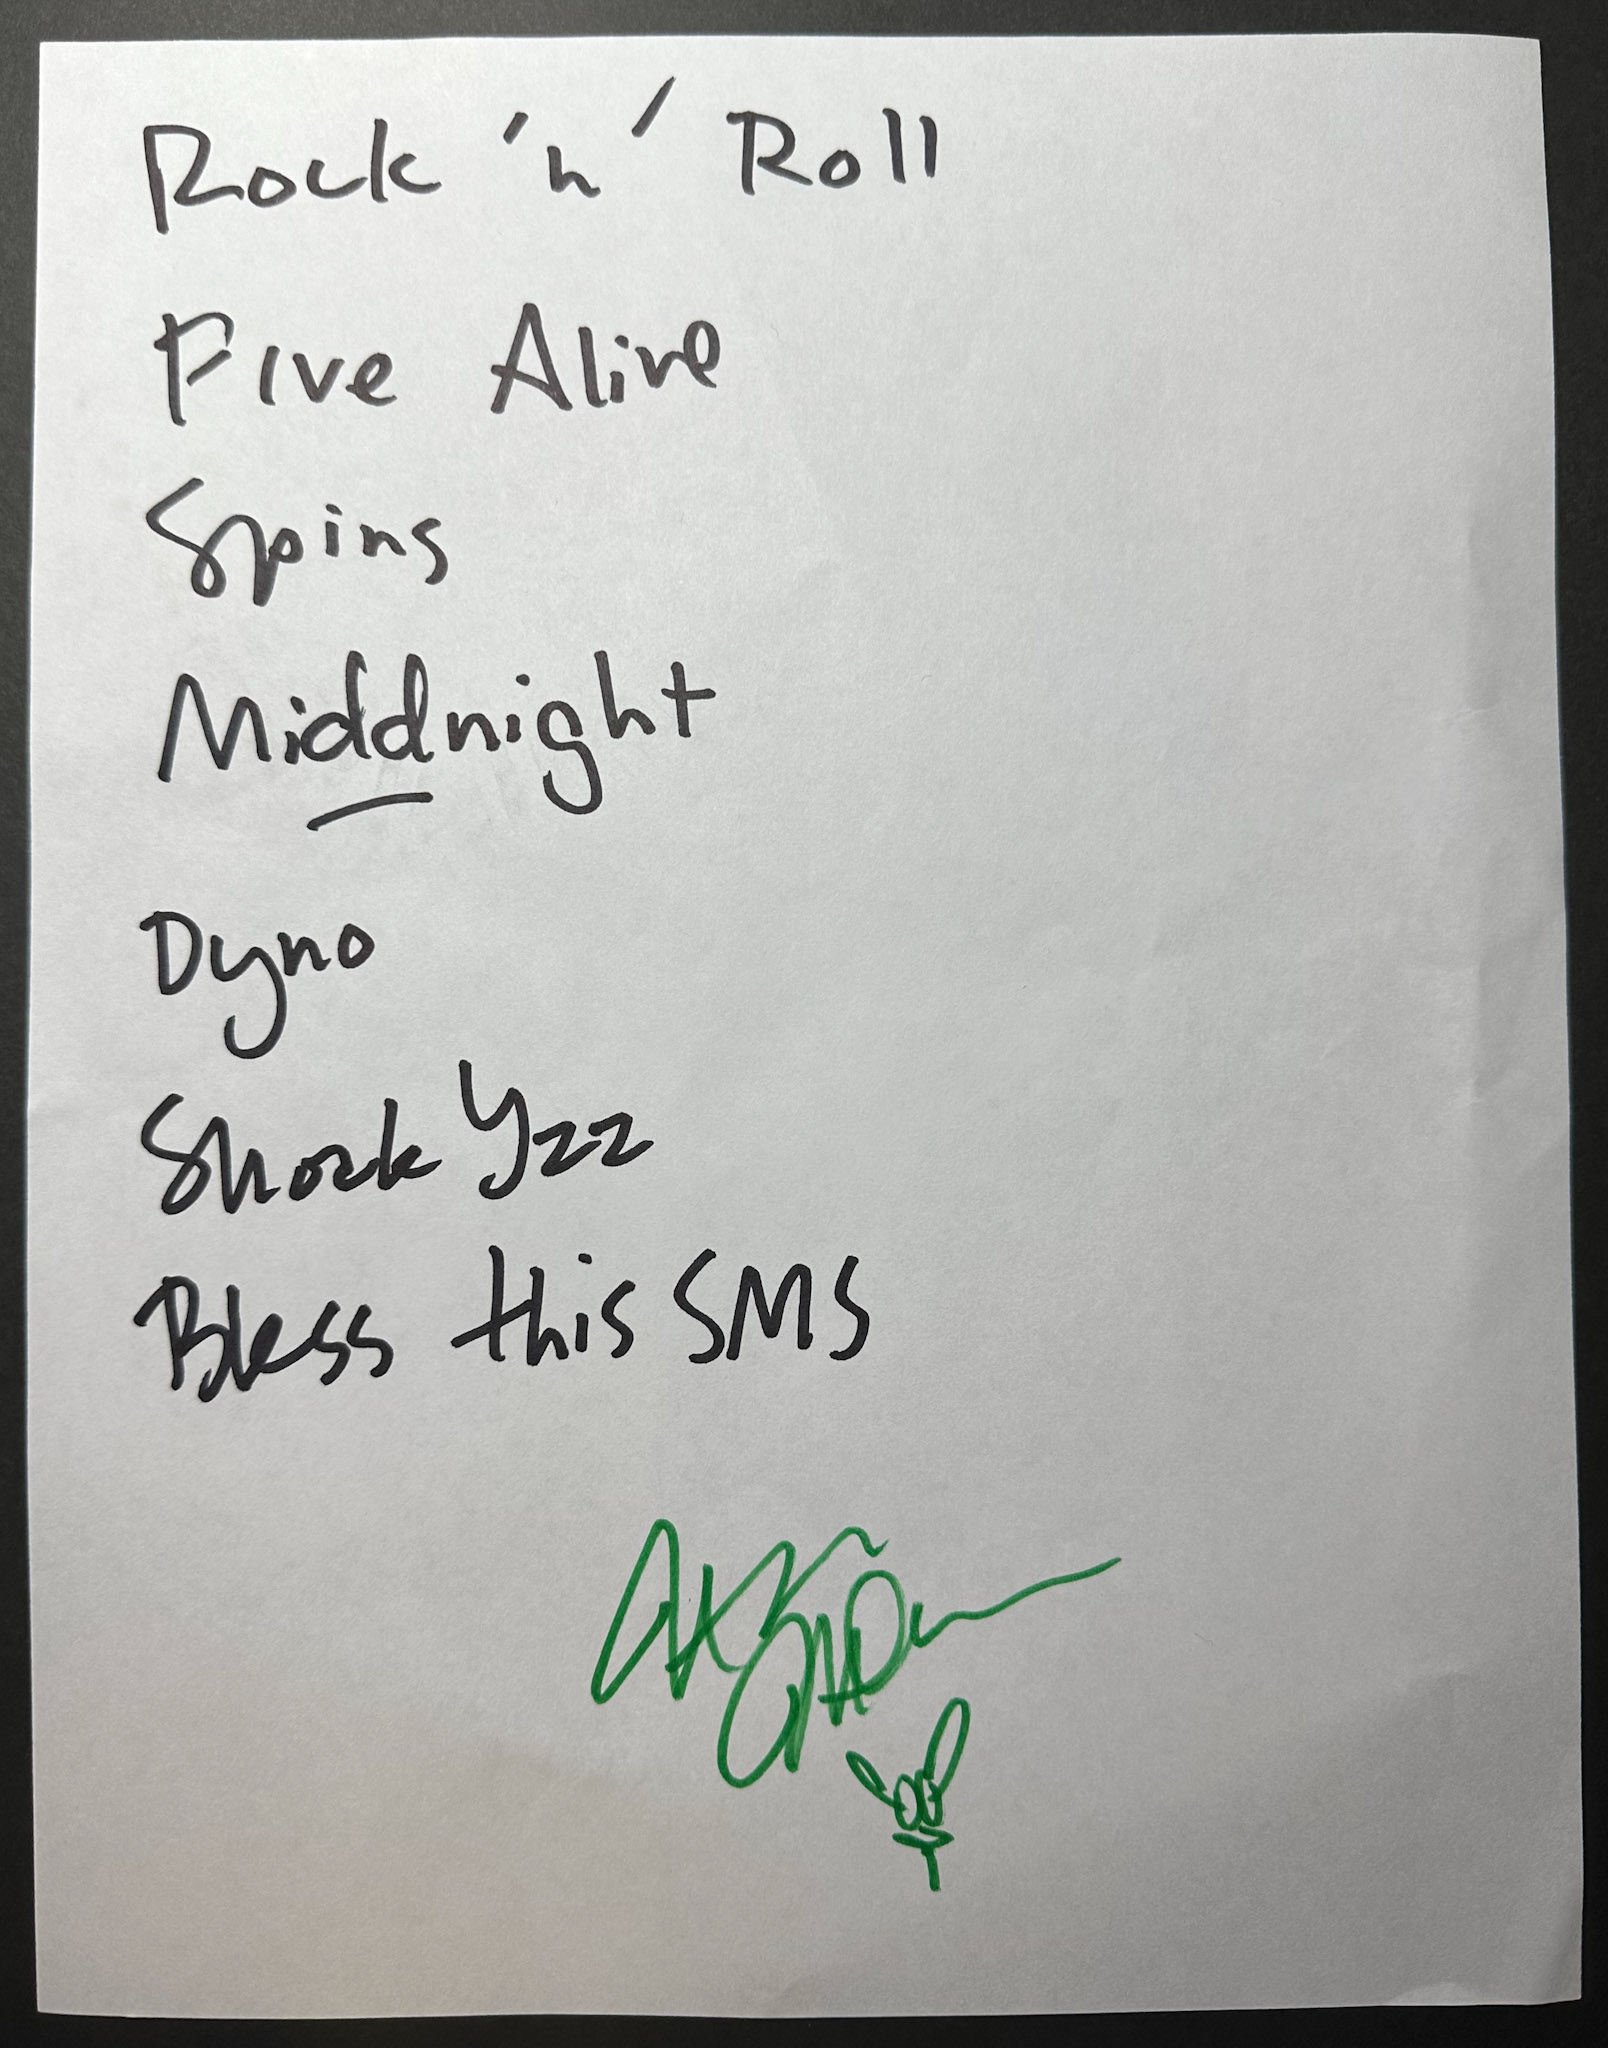 Rock 'n' Roll
Five Alive
Spins
Middnight
Dyno
Shock Yzz
Bless this SMS